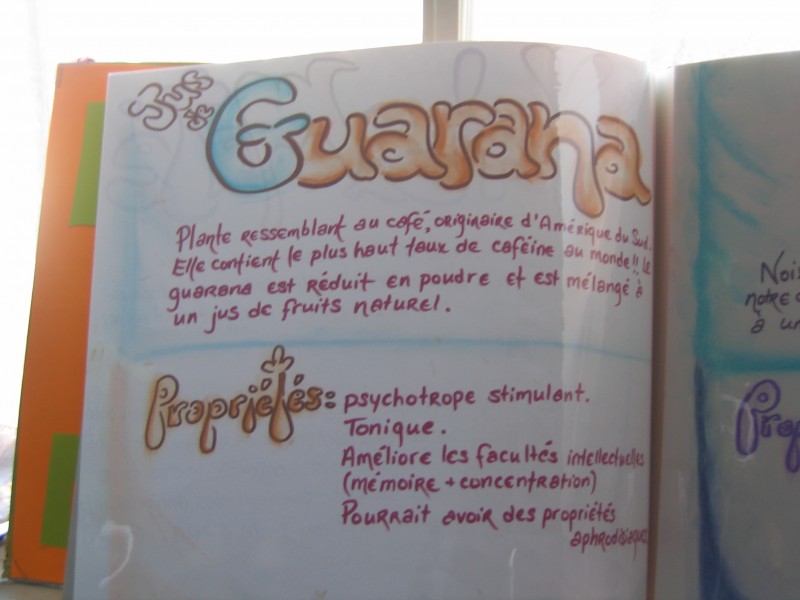 Jus de Guarana
Plante ressemblant au café, originaire d'Amérique du Sud.
Elle contient le plus haut taux de caféine au monde!! Le
guarana est réduit en poudre et est mélangé à
un jus de fruits naturel.
Propriétés: psychotrope stimulant.
Tonique.
Améliore les facultés intellectuelles
(mémoire + concentration)
Pourrait avoir des propriétés
aphrodisiaques
Noi
notre
à un
Prop